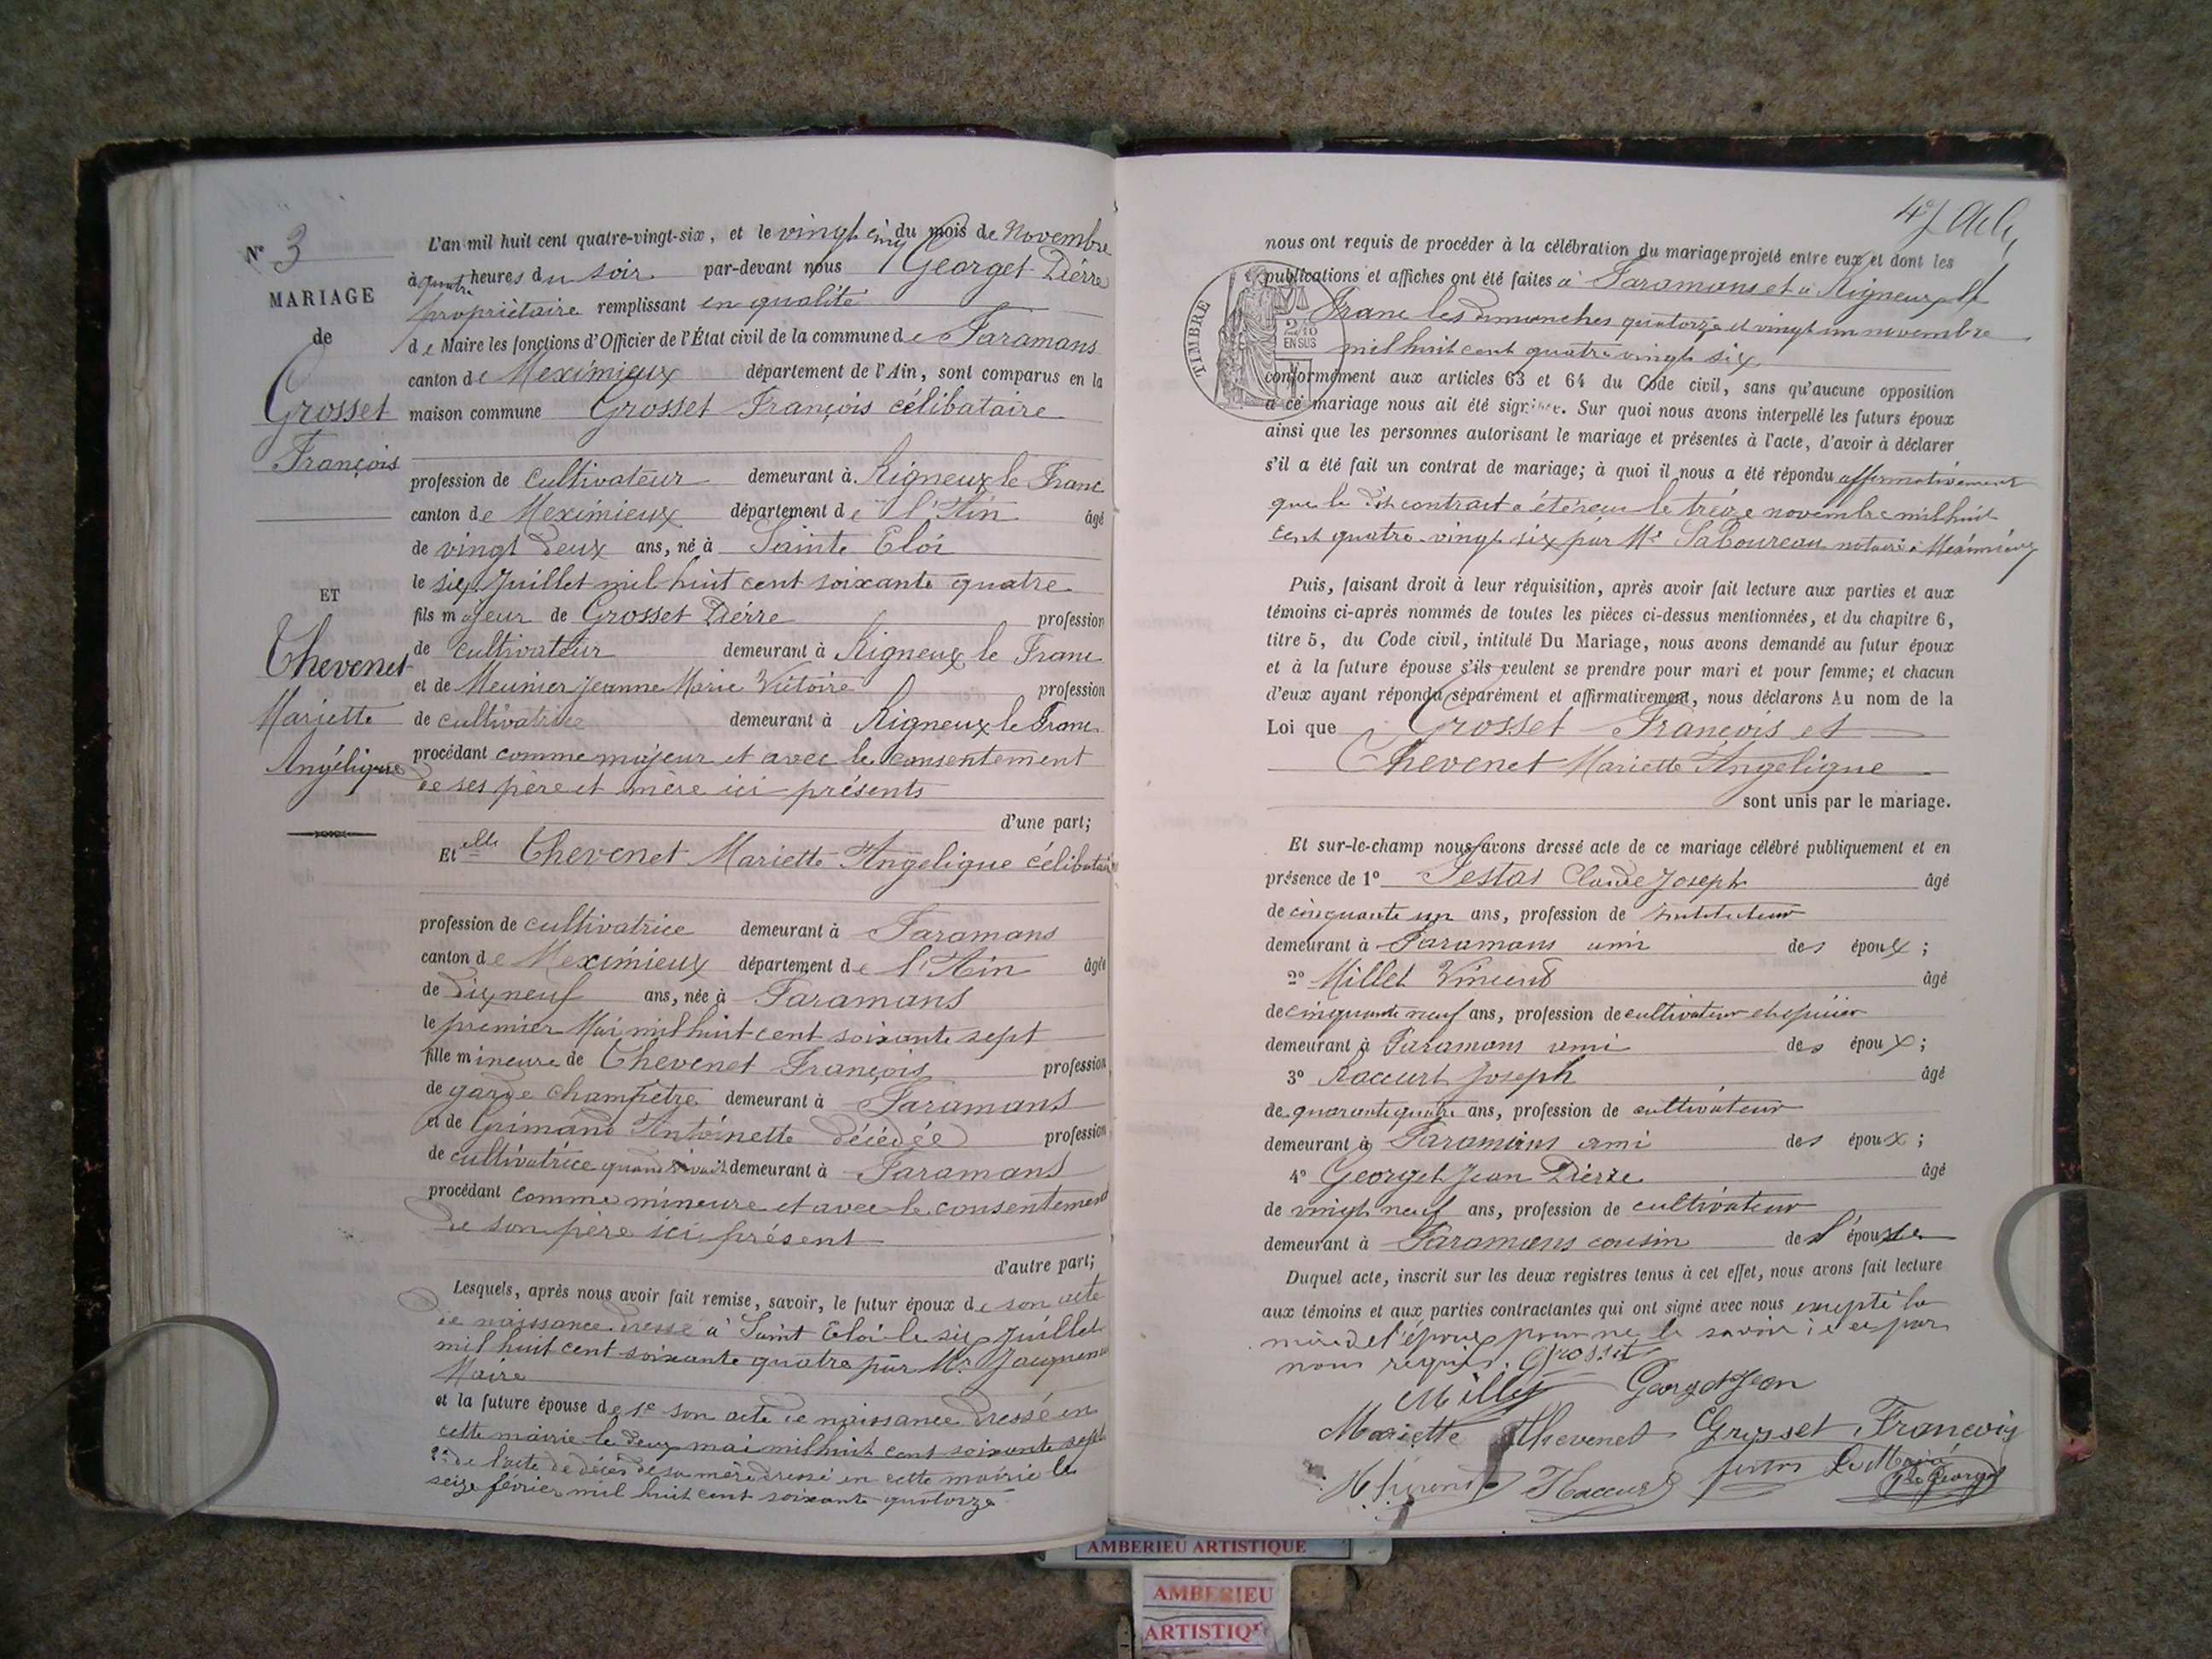 N° 3
MARIAGE
de
Grosset
François
ET
Chevenet
Mariette
Angélique
L'an mil huit cent quatre-vingt-six, et le vingt cinq du mois de Novembre
à quatre heures du soir par-devant nous Georget Pièrre
propriètaire remplissant en qualité
de Maire les fonctions d'Officier de l'État civil de la commune de Faramans
canton de Meximieux département de l'Ain, sont comparus en la
maison commune Grosset François célibataire
profession de cultivateur demeurant à Rigneux le Franc
canton de Meximieux département de l'Ain âgé
de vingt deux ans, né à Sainte Eloi
le six Juillet mil huit cent soixante quatre
fils majeur de Grosset Pièrre profession
de cultivateur demeurant à Rigneux le Franc
et de Meunier Jeanne Marie Victoire profession
de cultivatrice demeurant à Rigneux le Franc
procédant comme majeur et avec le consentement
de ses père et mère ici présents
d'une part;
Et elle Chevenet Mariette Angélique célibataire
profession de cultivatrice demeurant à Faramans
canton de Meximieux département de l'Ain âgée
de dix neuf ans, née à Faramans
le premier Mai mil huit cent soixante sept
fille mineure de Chevenet François profession
de garde champêtre demeurant à Faramans
et de Grimand Antoinette décédée profession
de cultivatrice quand vivait demeurant à Faramans
procédant comme mineure et avec le consentement
de son père ici présent
d'autre part;
Lesquels, après nous avoir fait remise, savoir, le futur époux de son acte
de naissance dressé à Saint Eloi le six Juillet
mil huit cent soixante quatre par Mr
Maire
et la future épouse de 1° son acte de naissance dressé en
cette mairie le deux mai mil huit cent soixante sept
2° de l'acte de décès de sa mère dressé en cette mairie le
seize février mil huit cent soixante quatorze
nous ont requis de procéder à la célébration du mariage projeté entre eux et dont les
publications et affiches ont été faites à Faramans et à Rigneux le
Franc les dimanches quatorze et vingt un novembre
mil huit cent quatre vingt six
TIMBRE
2/10
EN SUS
conformément aux articles 63 et 64 du Code civil, sans qu'aucune opposition
à ce mariage nous ait été signifiée. Sur quoi nous avons interpellé les futurs époux
ainsi que les personnes autorisant le mariage et présentes à l'acte, d'avoir à déclarer
s'il a été fait un contrat de mariage; à quoi il nous a été répondu affirmativement
que le dit contract a été reçu le trèize novembre mil huit
cent quatre-vingt six par Me Saboureau notaire à Meximieux
Puis, faisant droit à leur réquisition, après avoir fait lecture aux parties et aux
témoins ci-après nommés de toutes les pièces ci-dessus mentionnées, et du chapitre 6,
titre 5, du Code civil, intitulé Du Mariage, nous avons demandé au futur époux
et à la future épouse s'ils veulent se prendre pour mari et pour femme; et chacun
d'eux ayant répondu séparément et affirmativement, nous déclarons Au nom de la
Loi que Grosset François et
Chevenet Mariette Angelique
sont unis par le mariage.
Et sur-le-champ nous avons dressé acte de ce mariage célébré publiquement et en
présence de 1° Festas Claude Joseph âgé
de cinquante un ans, profession de instituteur
demeurant à Faramans ami des époux;
2° Millet Vincent âgé
de cinquante neuf ans, profession de cultivateur et épicier
demeurant à Faramans ami des époux;
3° Raccurt Joseph âgé
de quarante quatre ans, profession de cultivateur
demeurant à Faramans ami des époux;
4° Georget Jean Pièrre âgé
de vingt neuf ans, profession de cultivateur
demeurant à Faramans cousin de l'épouse
Duquel acte, inscrit sur les deux registres tenus à cet effet, nous avons fait lecture
aux témoins et aux parties contractantes qui ont signé avec nous excepté la
mère de l'époux pour ne le savoir; de ce par
nous requis. Grosset
Millet Georget Jean
Mariette Chevenet Grosset François
Raccurt Le Maire
Georget
AMBERIEU ARTISTIQUE
AMBERIEU
ARTISTIQ